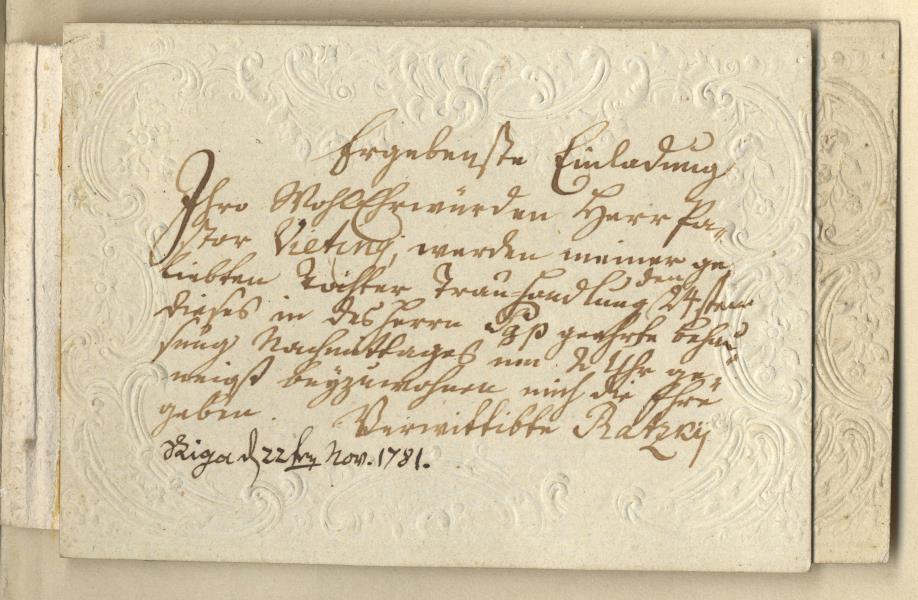 Ergebenste Einladung
Ihro WohlEhrwürden Herr Pa-
stor Vieting, werden meiner ge
liebten Tochter Trauhandlung den 24sten
dieses in des Herrn geehrte Behau
sung Nachmittages um 2 Uhr ge-
neigst beyzuwohnen mich die Ehre
geben. Verwittibte Ratzky
Riga d 22ten Nov. 1781.